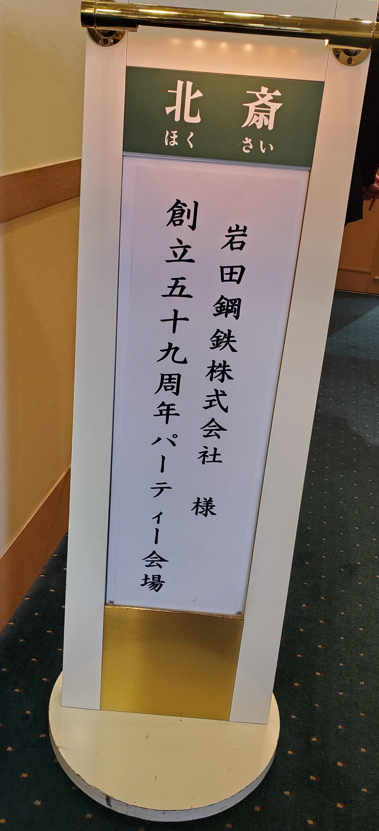 北斎
ほくさい
岩田鋼鉄株式会社 様
創立五十九周年パーティー会場